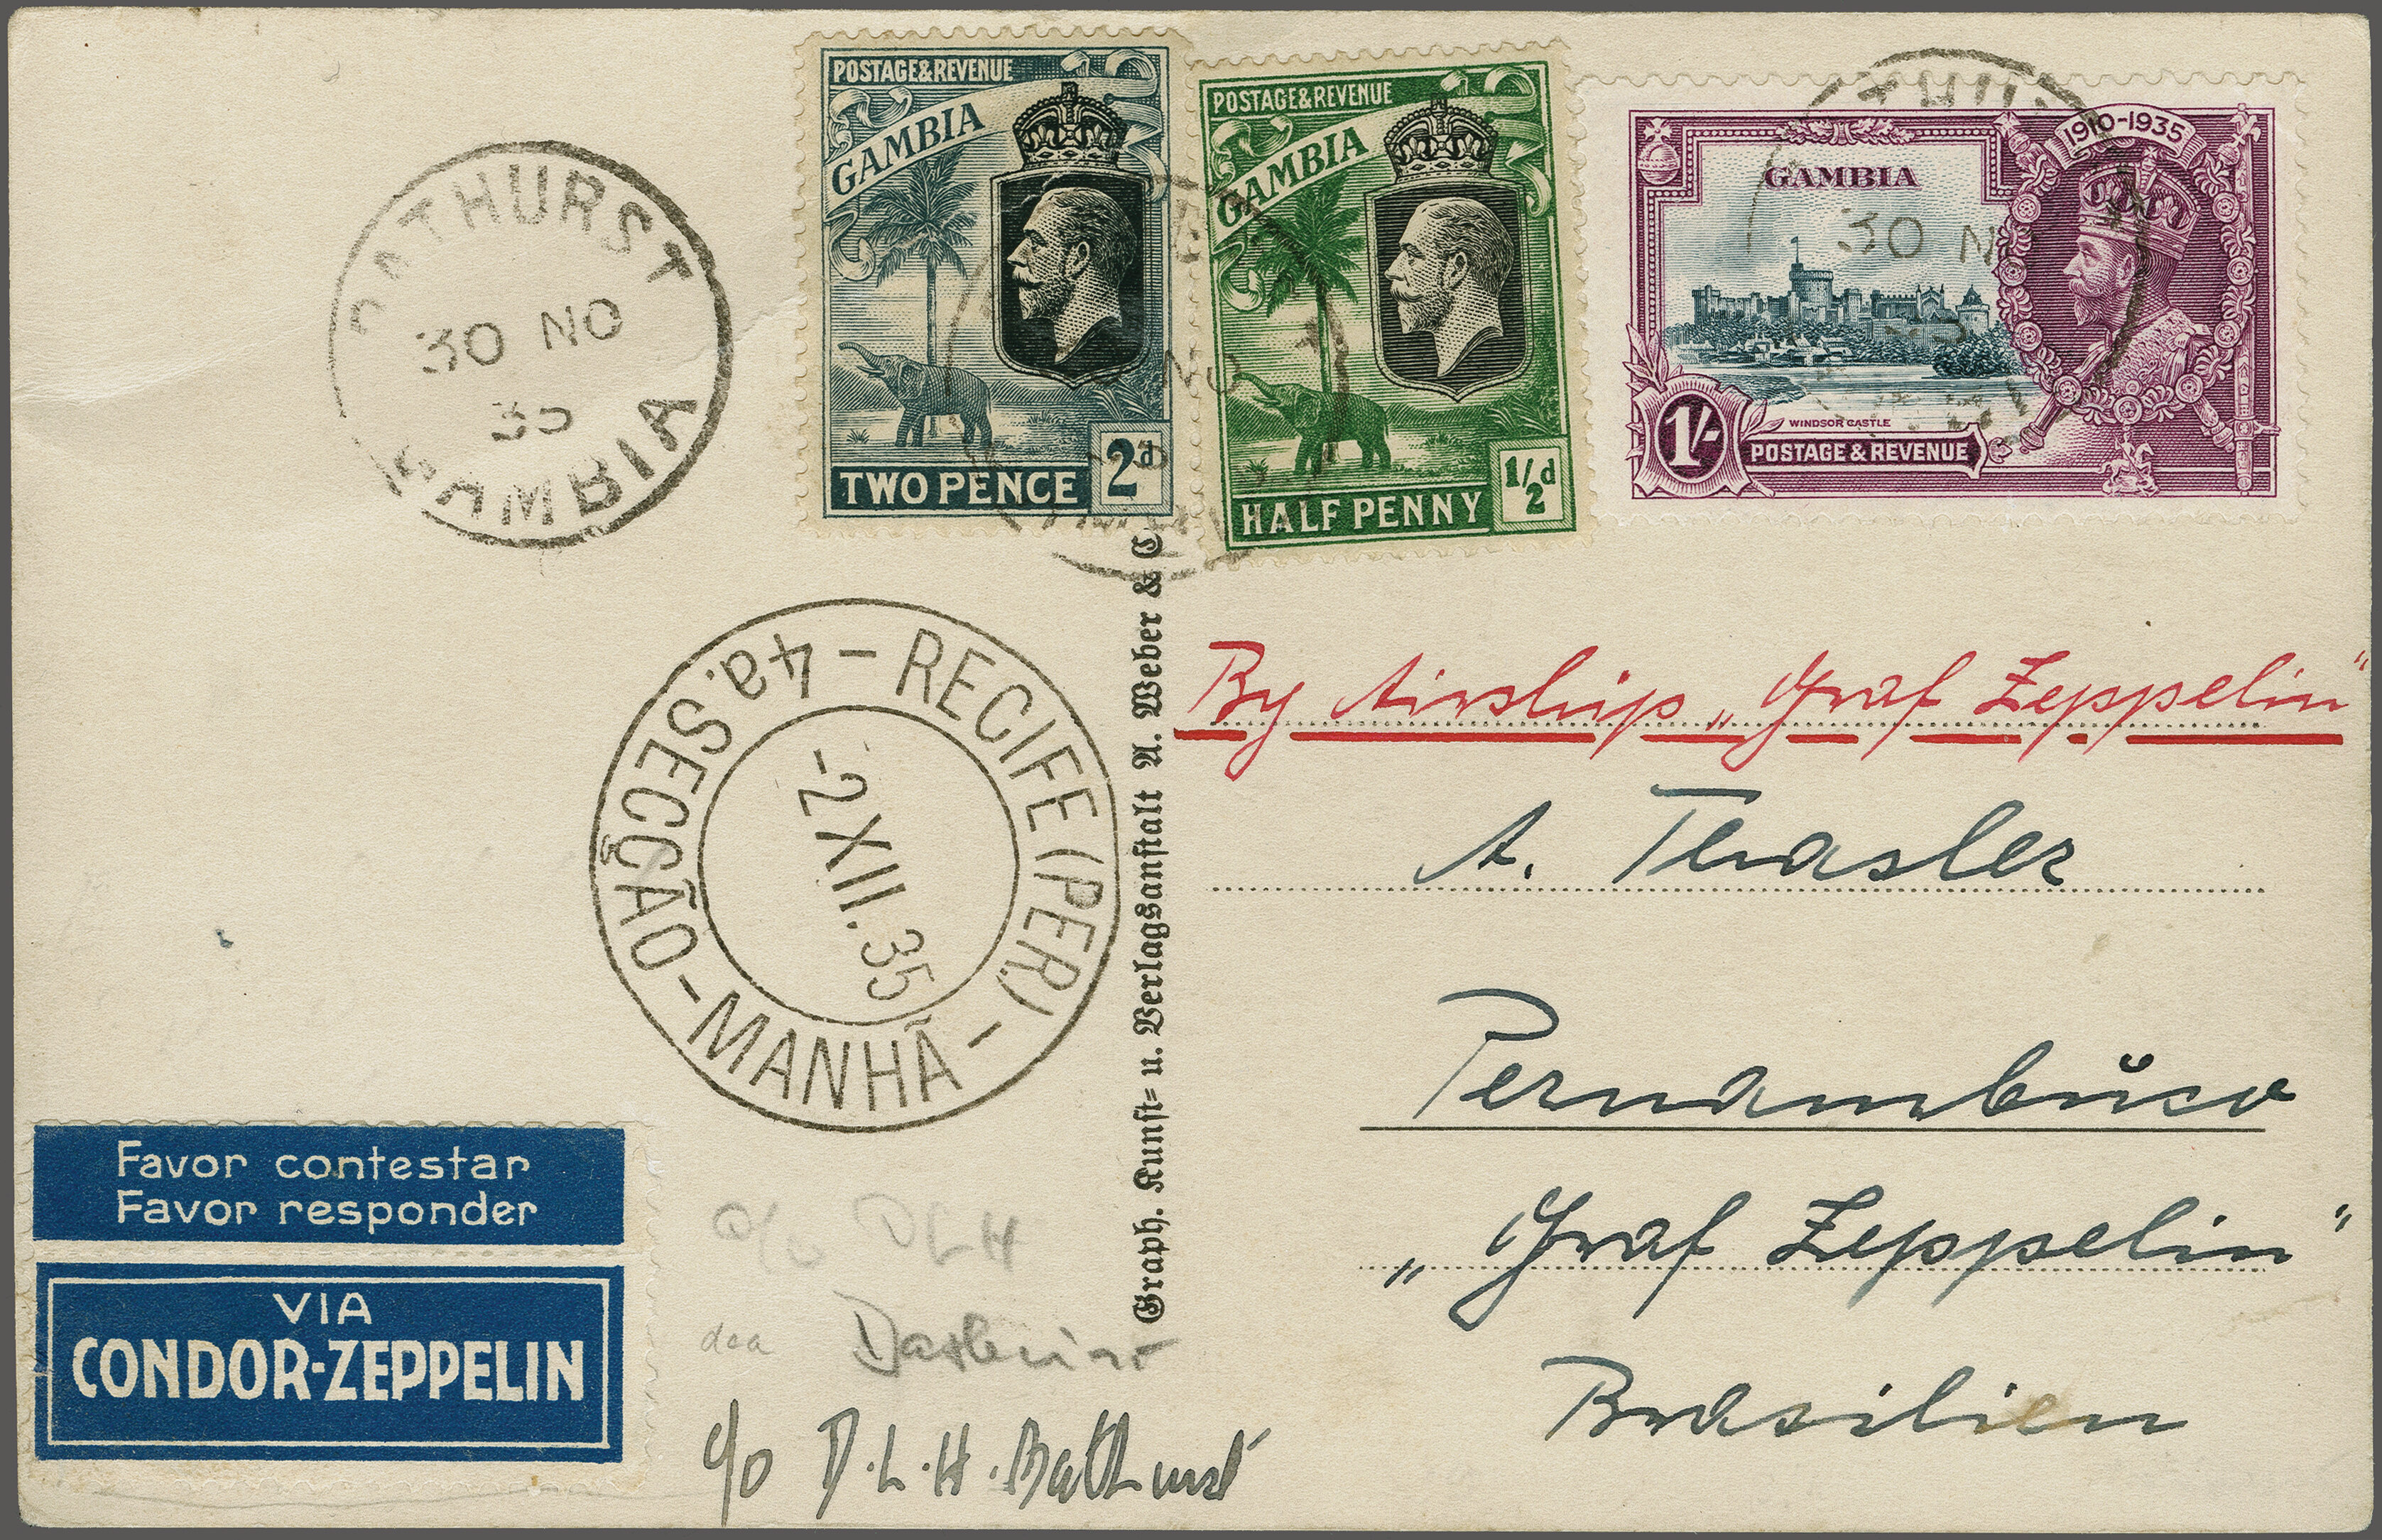 POSTAGE & REVENUE
GAMBIA
TWO PENCE 2d
POSTAGE & REVENUE
GAMBIA
HALF PENNY 1/2d
1910-1935
GAMBIA
WINDSOR CASTLE
1/- POSTAGE & REVENUE
30 NO
BATHURST
30 NO
35
GAMBIA
4a. SECÇÃO - MANHÃ - RECIFE (PER.) -
-2 XII. 35
Graph. Kunst= u. Verlagsanstalt A. Weber & C
By Airship „Graf Zeppelin“
A. Thasler
Pernambŭco
„Graf Zeppelin“
Brasilien
Favor contestar
Favor responder
VIA
CONDOR-ZEPPELIN
c/o DLH
c/o D.L.H. Bathurst